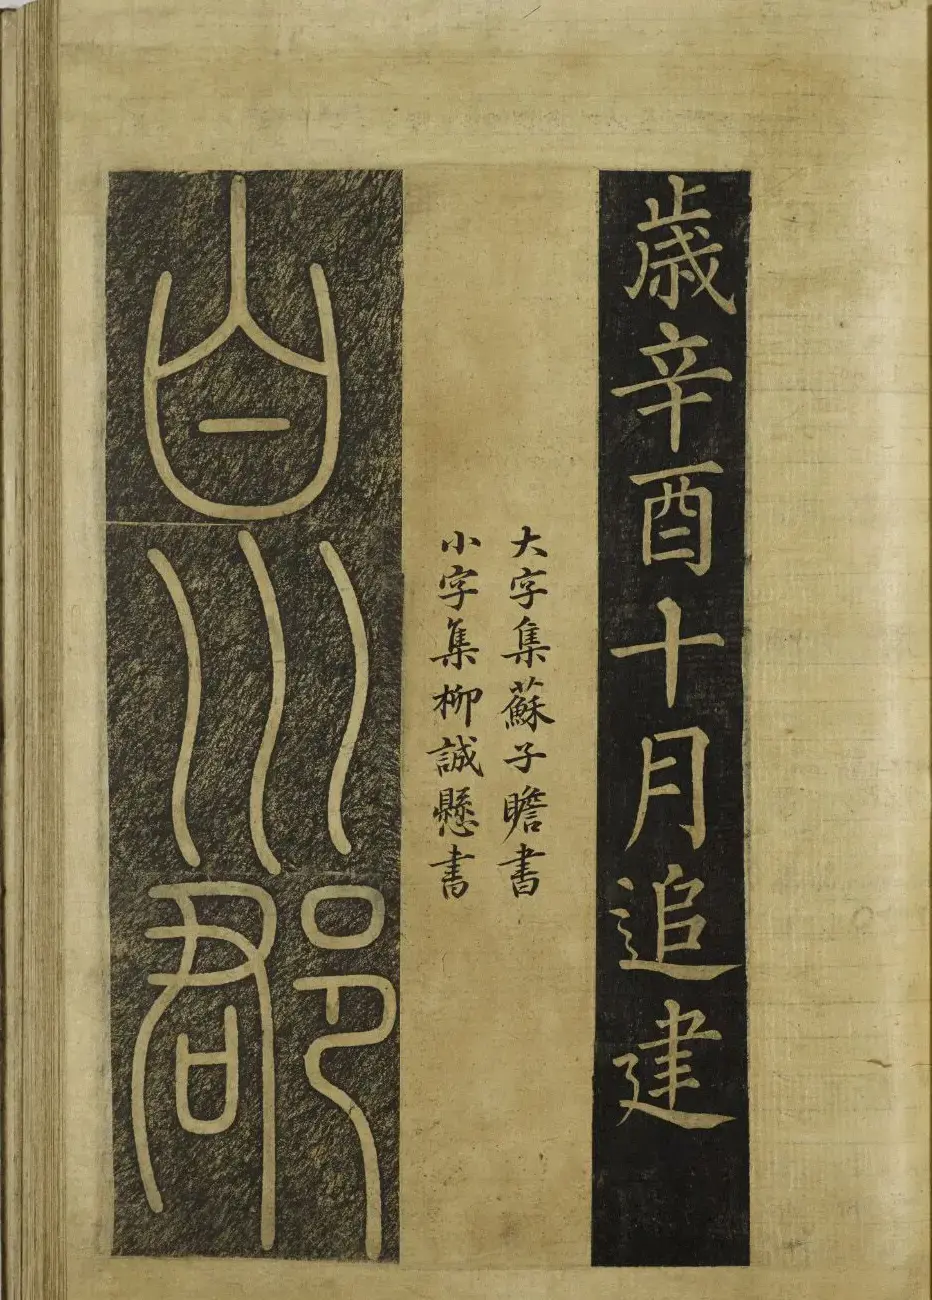 歳辛酉十月追建
大字集蘇子瞻書
小字集柳誠懸書
白川郡